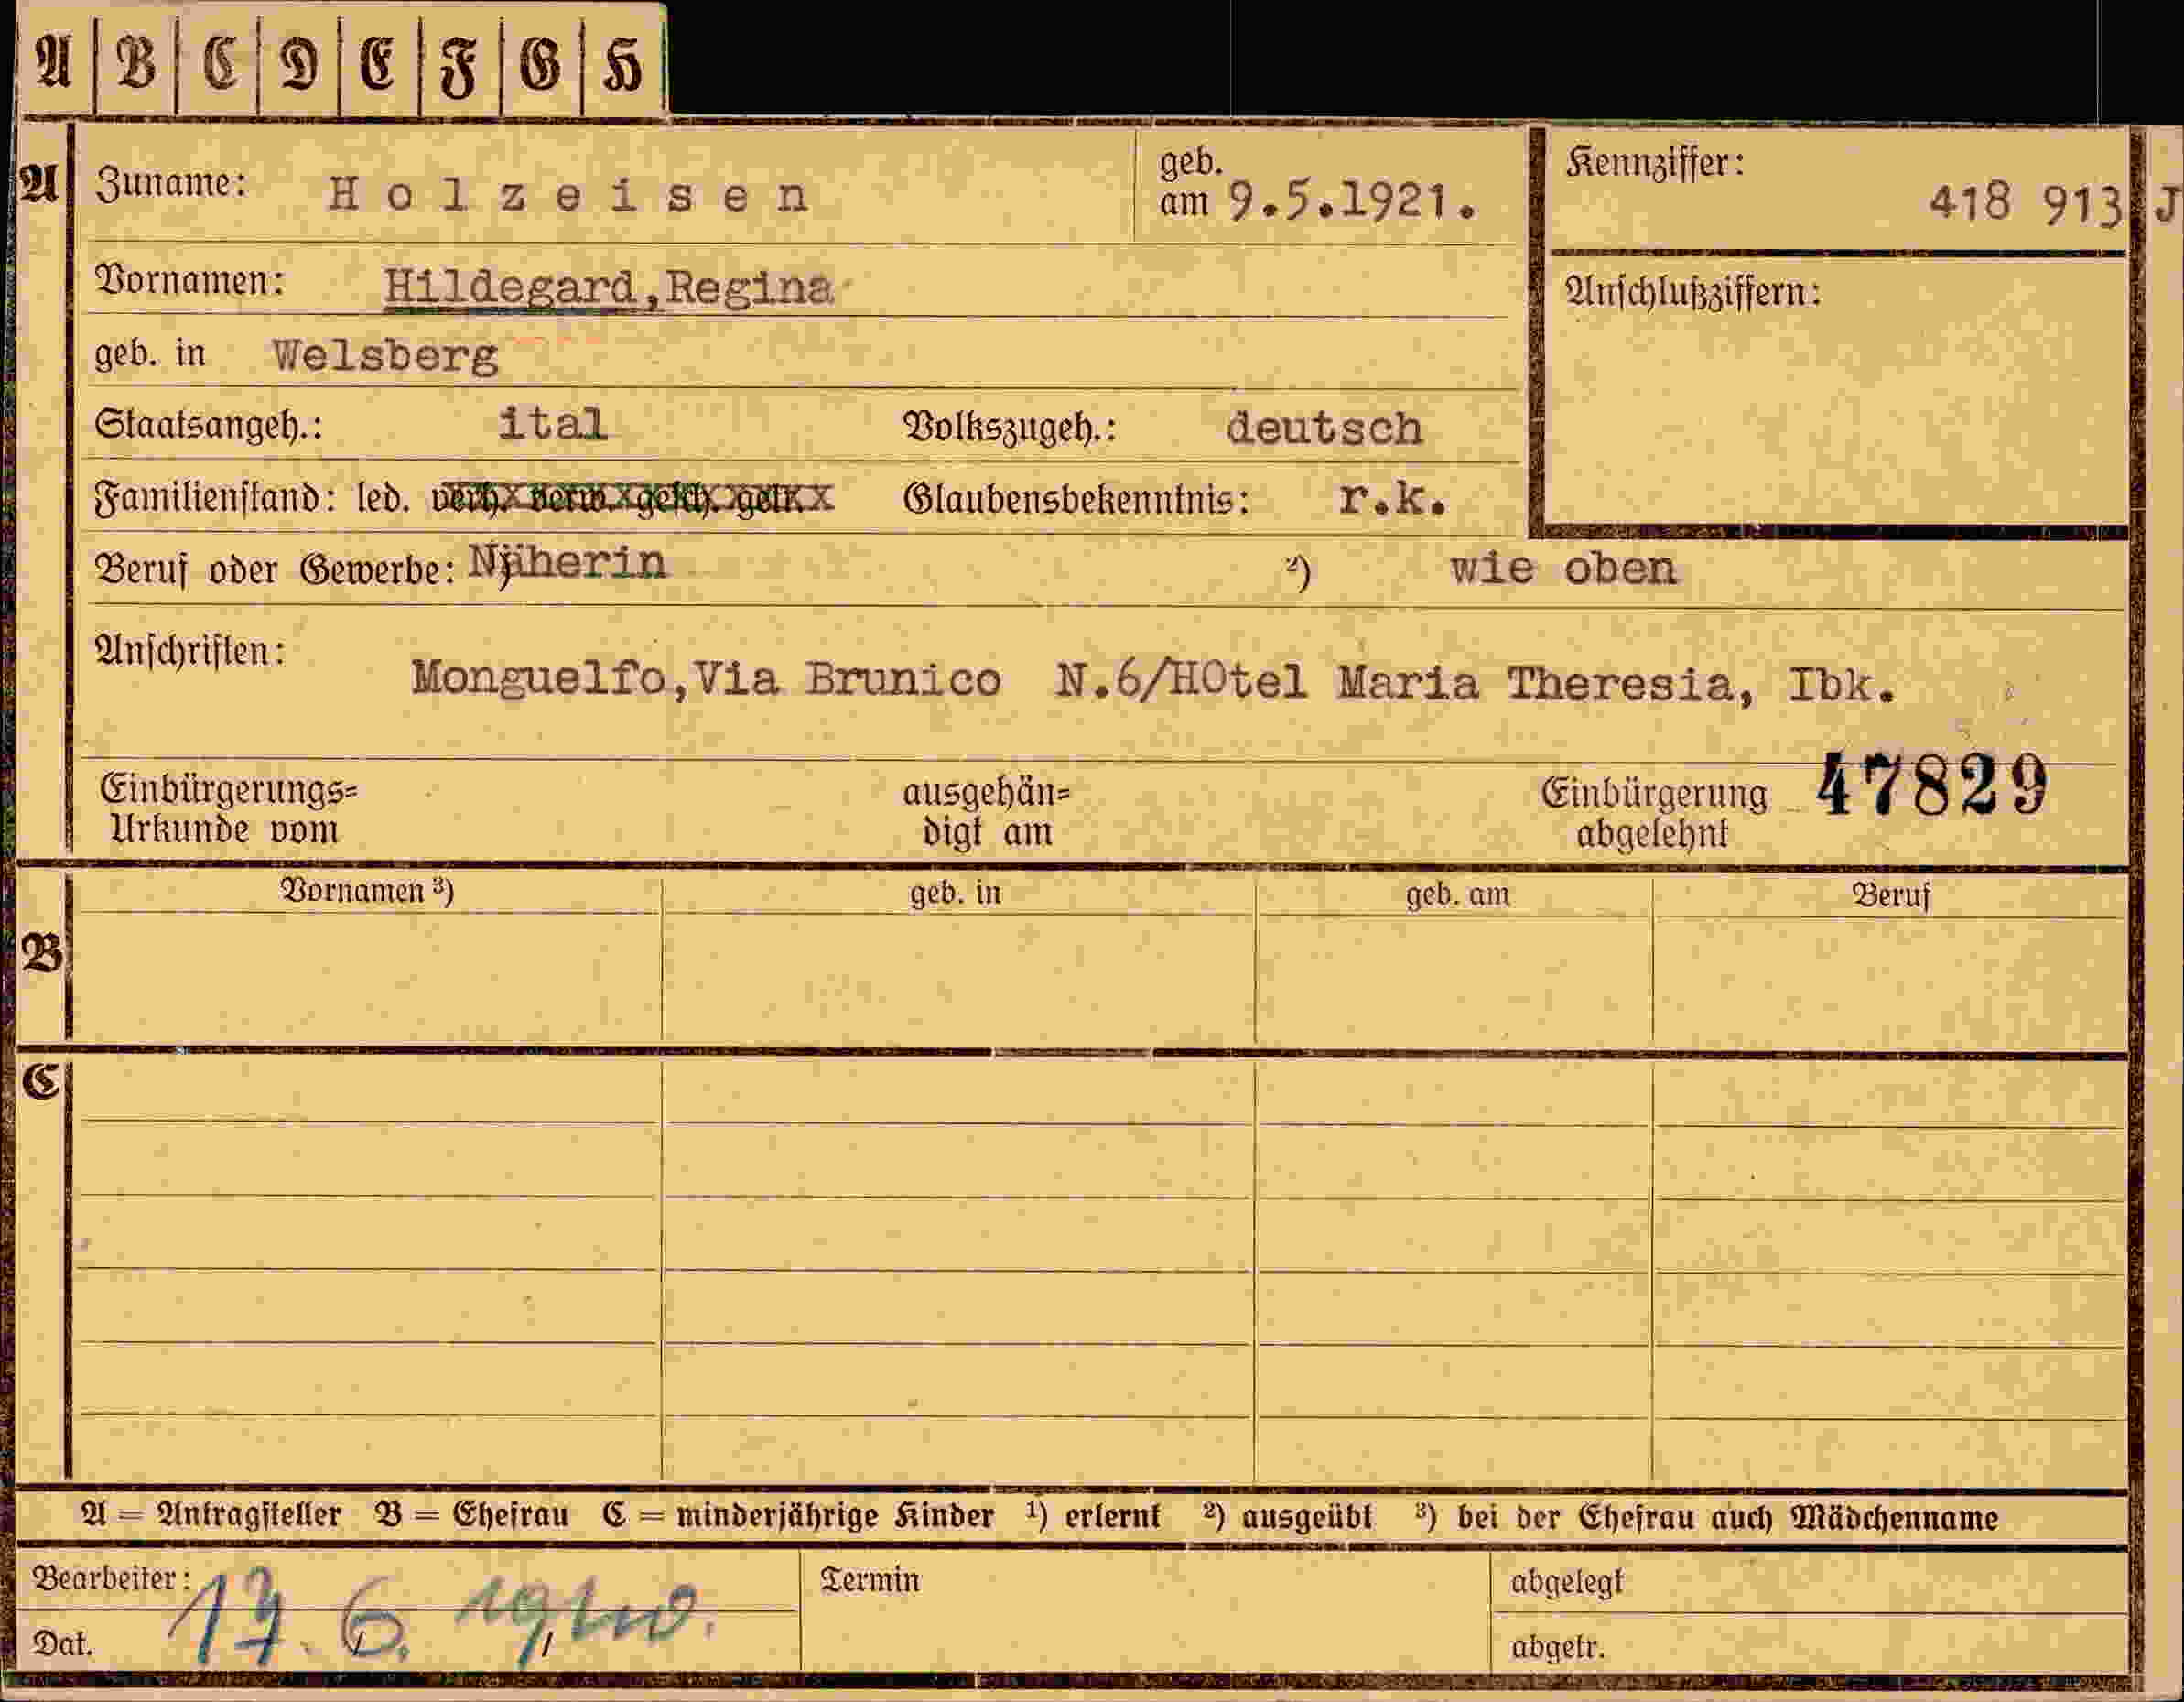 A B C D E F G H
A Zuname: Holzeisen geb. am 9.5.1921. Kennziffer: 418 913 J
Vornamen: Hildegard,Regina Anschlußziffern:
geb. in Welsberg
Staatsangeh.: ital Volkszugeh.: deutsch
Familienstand: led. verh. verw. gesch. Glaubensbekenntnis: r.k.
Beruf oder Gewerbe: Näherin ²) wie oben
Anschriften: Monguelfo,Via Brunico N.6/HOtel Maria Theresia, Ibk.
Einbürgerungs= ausgehän= Einbürgerung 47829
Urkunde vom digt am abgelehnt
B Vornamen ³) geb. in geb. am Beruf
C
A = Antragsteller B = Ehefrau C = minderjährige Kinder ¹) erlernt ²) ausgeübt ³) bei der Ehefrau auch Mädchenname
Bearbeiter: Termin abgelegt
Dat. 17. 6. 1940. abgetr.